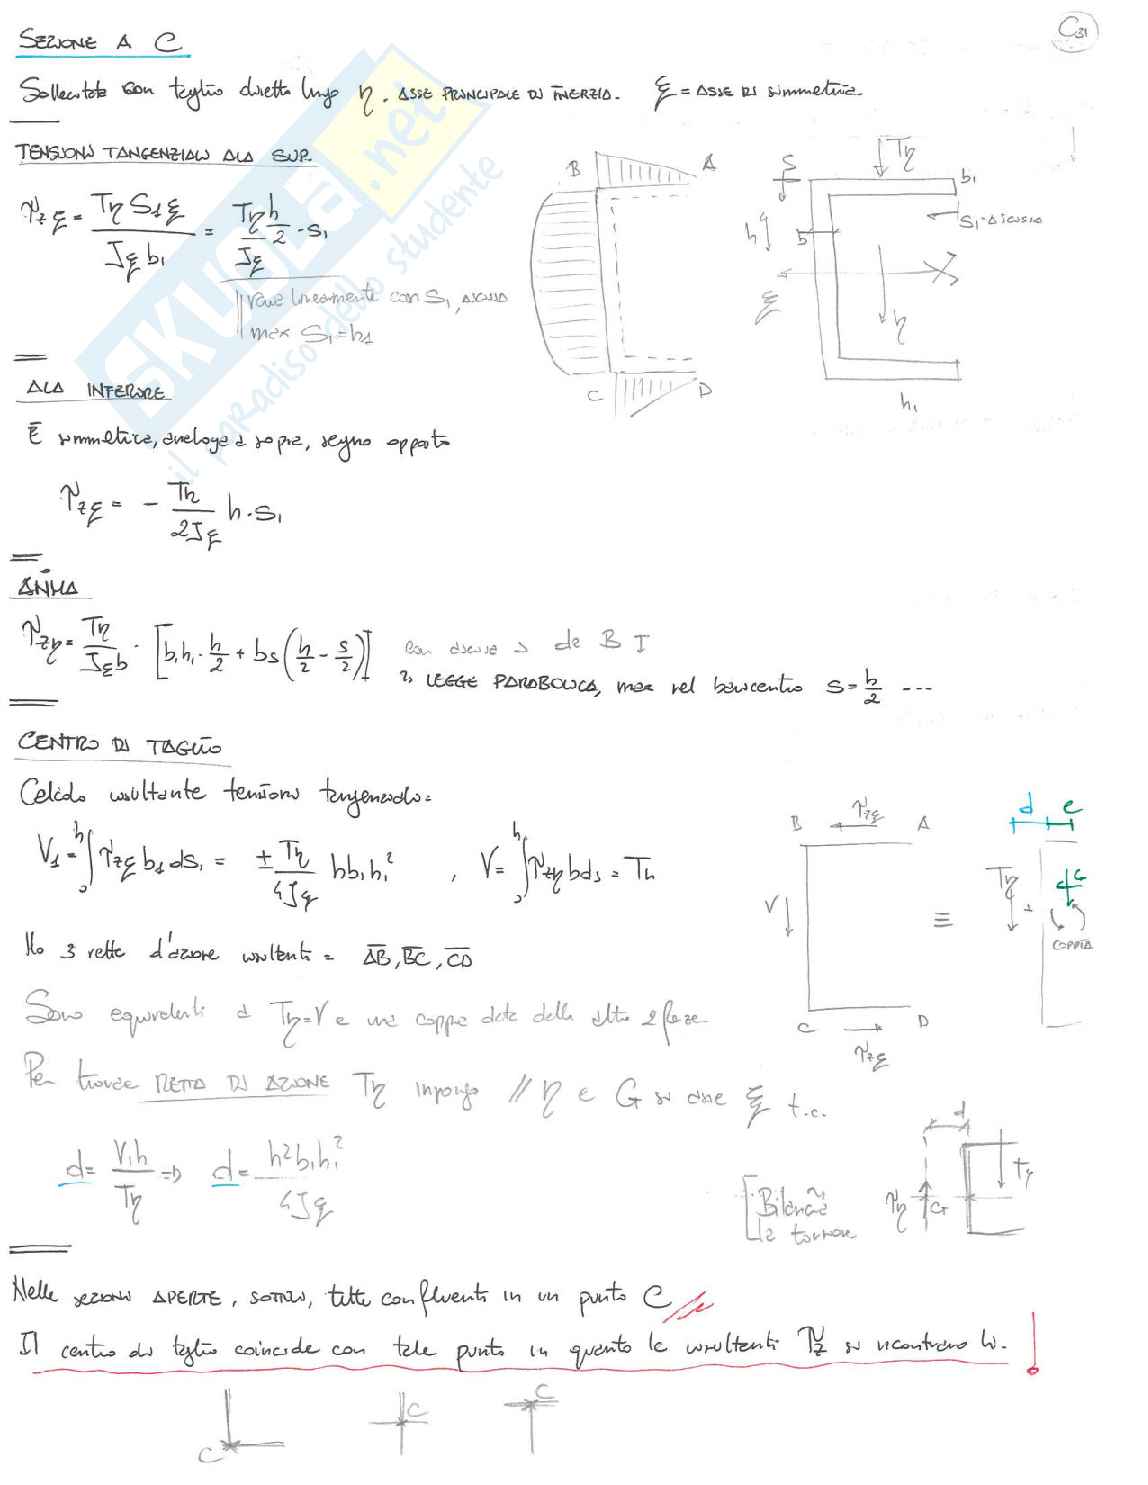 C31
SEZIONE A C
Sollecitata con taglio diretto lungo η. ASSE PRINCIPALE DI INERZIA. ξ = ASSE DI SIMMETRIA
TENSIONI TANGENZIALI ALA SUP.
τzξ = Tη S1ξ / Jξ b1 = Tη h/2 · S1 / Jξ
Varia linearmente con S1, ascissa
max S1 = h1
B A
C D
Tη
S b1
S1 = ASCISSA
h b
ξ η
h1
ALA INFERIORE
È simmetrica, analoga a sopra, segno opposto
τzξ = - Tη / 2Jξ h · S1
ANIMA
τzη = Tη / Jξ b · [b1h1 · h/2 + bs (h/2 - s/2)] con ascissa s da B
LEGGE PARABOLICA, max nel baricentro s = h/2 ...
CENTRO DI TAGLIO
Calcolo risultante tensioni tangenziali:
V1 = ∫ τzξ b1 ds1 = ± Tη / 4Jξ h b1 h1² , V = ∫ τzη b ds = Tη
B τzξ A
V
C D
τzξ
≡
d e
Tη + G
COPPIA
Ho 3 rette d'azione risultenti = AB, BC, CD
Sono equivalenti a Tη = V e una coppia data dalle altre 2 forze
Per trovare RETTA DI AZIONE Tη impongo // η e G su asse ξ t.c.
d = V1h / Tη => d = h² b1 h1² / 4Jξ
d
Tη G Tη
Bilancia
la torsione
Nelle sezioni APERTE, SOTTILI, tutte confluenti in un punto C
Il centro di taglio coincide con tale punto in quanto le risultanti τz si incontrano lì.
C C C
SKUOLA.net
il paradiso dello studente